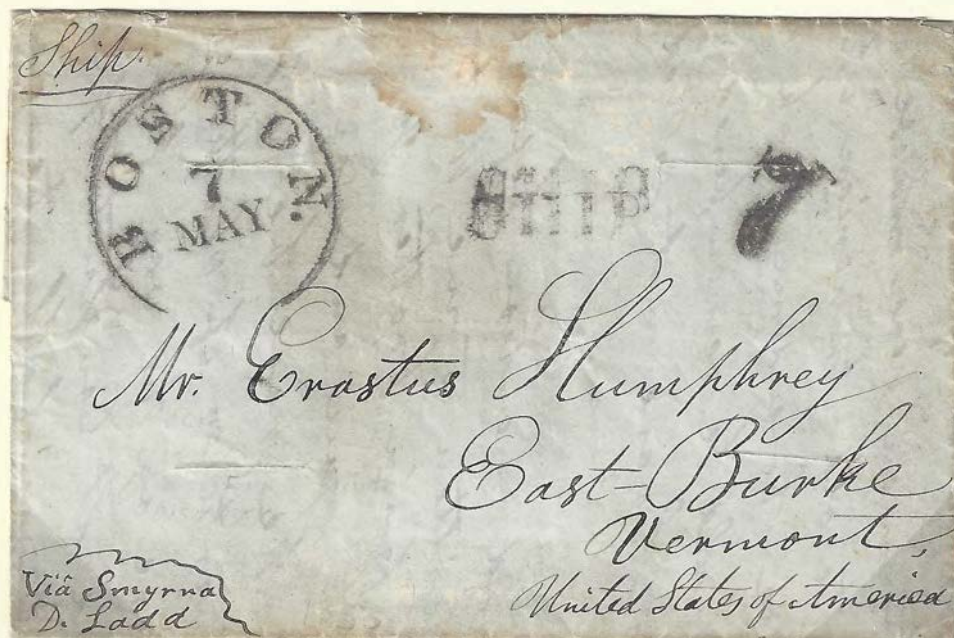 Ship.
BOSTON.
7
MAY
SHIP
7
Mr. Erastus Humphrey
East-Burke
Vermont,
United States of America
Viâ Smyrna
D. Ladd